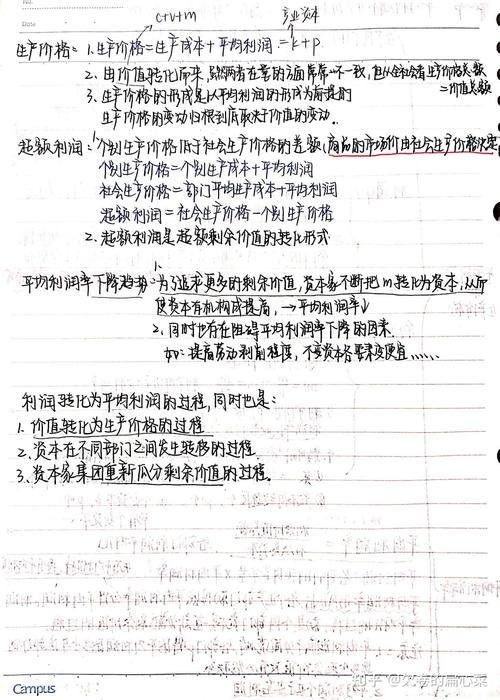 No.
Date
c+v+m 产业资本
生产价格= 1.生产价格=生产成本+平均利润 =k+p
2. 由价值转化而来,虽两者在量的方面常常不一致,但从全社会看生产价格总额
=价值总额
3. 生产价格的形成是以平均利润的形成为前提的
生产价格的变动归根到底取决于价值的变动.
超额利润=1.个别生产价格低于社会生产价格的差额(商品的市场价由社会生产价格决定
个别生产价格=个别生产成本+平均利润
社会生产价格=部门平均生产成本+平均利润
超额利润=社会生产价格-个别生产价格
2. 超额利润是超额剩余价值的转化形式
平均利润率下降趋势=1.为了追求更多的剩余价值,资本家不断把m转化为资本,从而
使资本有机构成提高,→平均利润率↓
2. 同时也存在阻碍平均利润率下降的因素
如:提高劳动剥削程度,不变资本各要素变便宜......
利润转化为平均利润的过程,同时也是:
1. 价值转化为生产价格的过程
2. 资本在不同部门之间发生转移的过程.
3. 资本家集团重新瓜分剩余价值的过程.
Campus
知乎 @欠卷的扁心菜